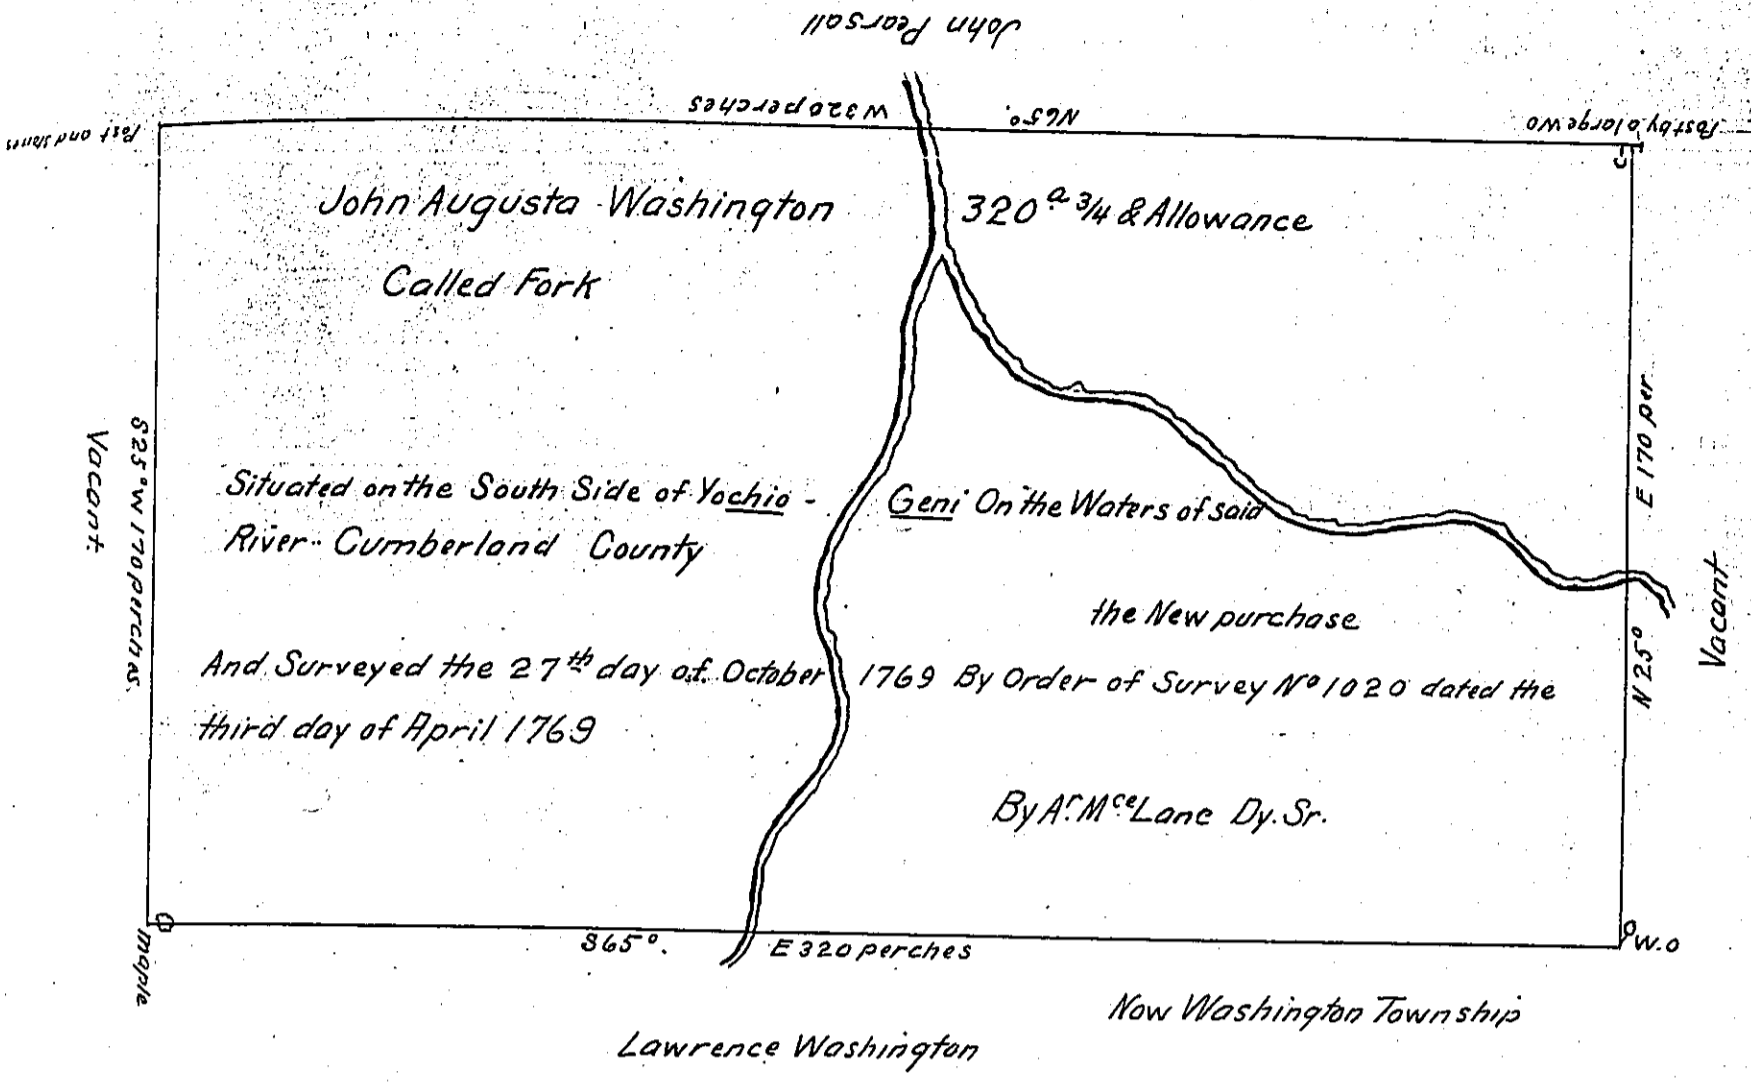 John Pearsall
N65°. W 320 perches
Post and stones
Post by a large W O
John Augusta Washington 320 a 3/4 & Allowance
Called Fork
S25° W 170 perches.
Vacant.
Situated on the South Side of Yochio - Geni On the Waters of said
River - Cumberland County
the New purchase
And Surveyed the 27th day of October 1769 By Order of Survey No 1020 dated the
third day of April 1769
By Ar. Mce Lane Dy. Sr.
N 25° E 170 per
Vacant
maple
S65°. E 320 perches
W.O
Now Washington Township
Lawrence Washington